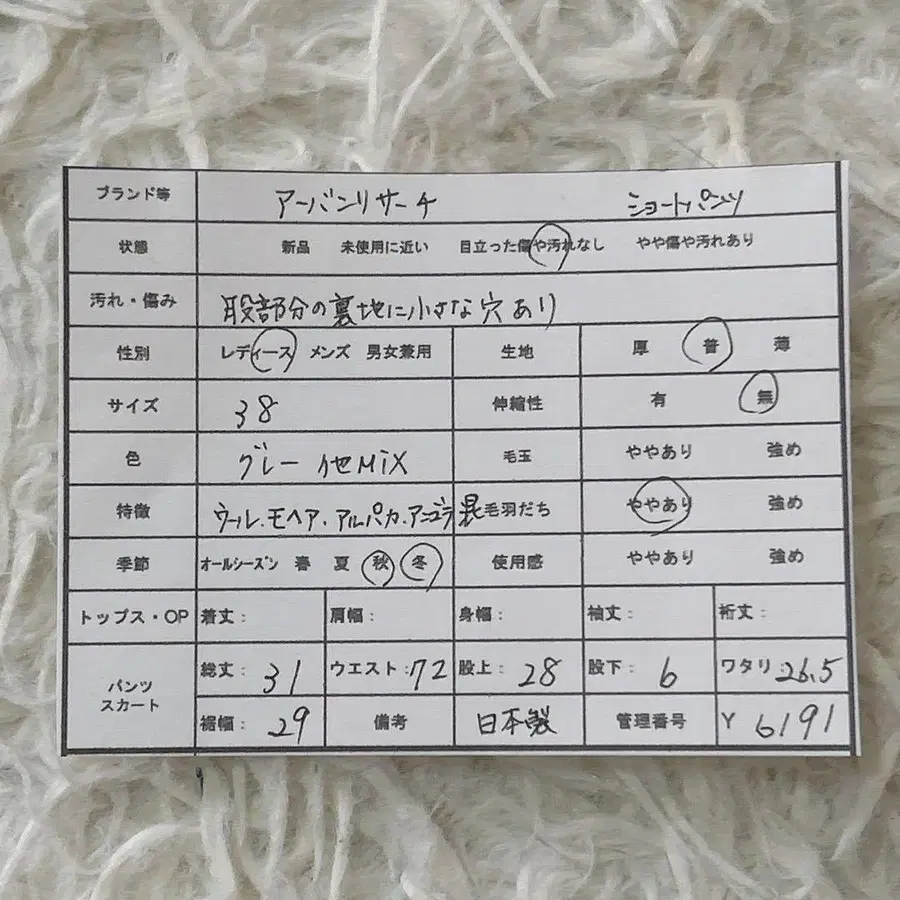 ブランド等 アーバンリサーチ ショートパンツ
状態 新品 未使用に近い 目立った傷や汚れなし やや傷や汚れあり
汚れ・傷み 股部分の裏地に小さな穴あり
性別 レディース メンズ 男女兼用 生地 厚 普 薄
サイズ 38 伸縮性 有 無
色 グレー 他MIX 毛玉 ややあり 強め
特徴 ウール.モヘア.アルパカ.アンゴラ混 毛羽だち ややあり 強め
季節 オールシーズン 春 夏 秋 冬 使用感 ややあり 強め
トップス・OP 着丈: 肩幅: 身幅: 袖丈: 裄丈:
パンツ スカート 総丈: 31 ウエスト:72 股上: 28 股下: 6 ワタリ:26.5
裾幅: 29 備考 日本製 管理番号 Y 6191